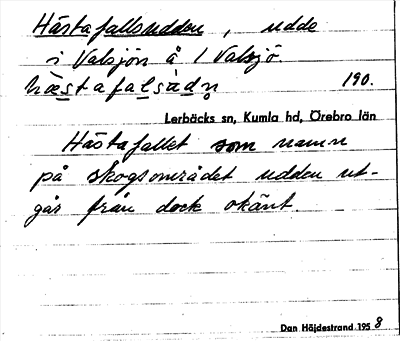 Hästafallsudden, udde
i Valsjön å 1 Valsjö.
hæstafalsùdn̥ 190.
Lerbäcks sn, Kumla hd, Örebro län
Hästafallet som namn
på skogsområdet udden ut-
går från dock okänt.
Dan Höjdestrand 1958